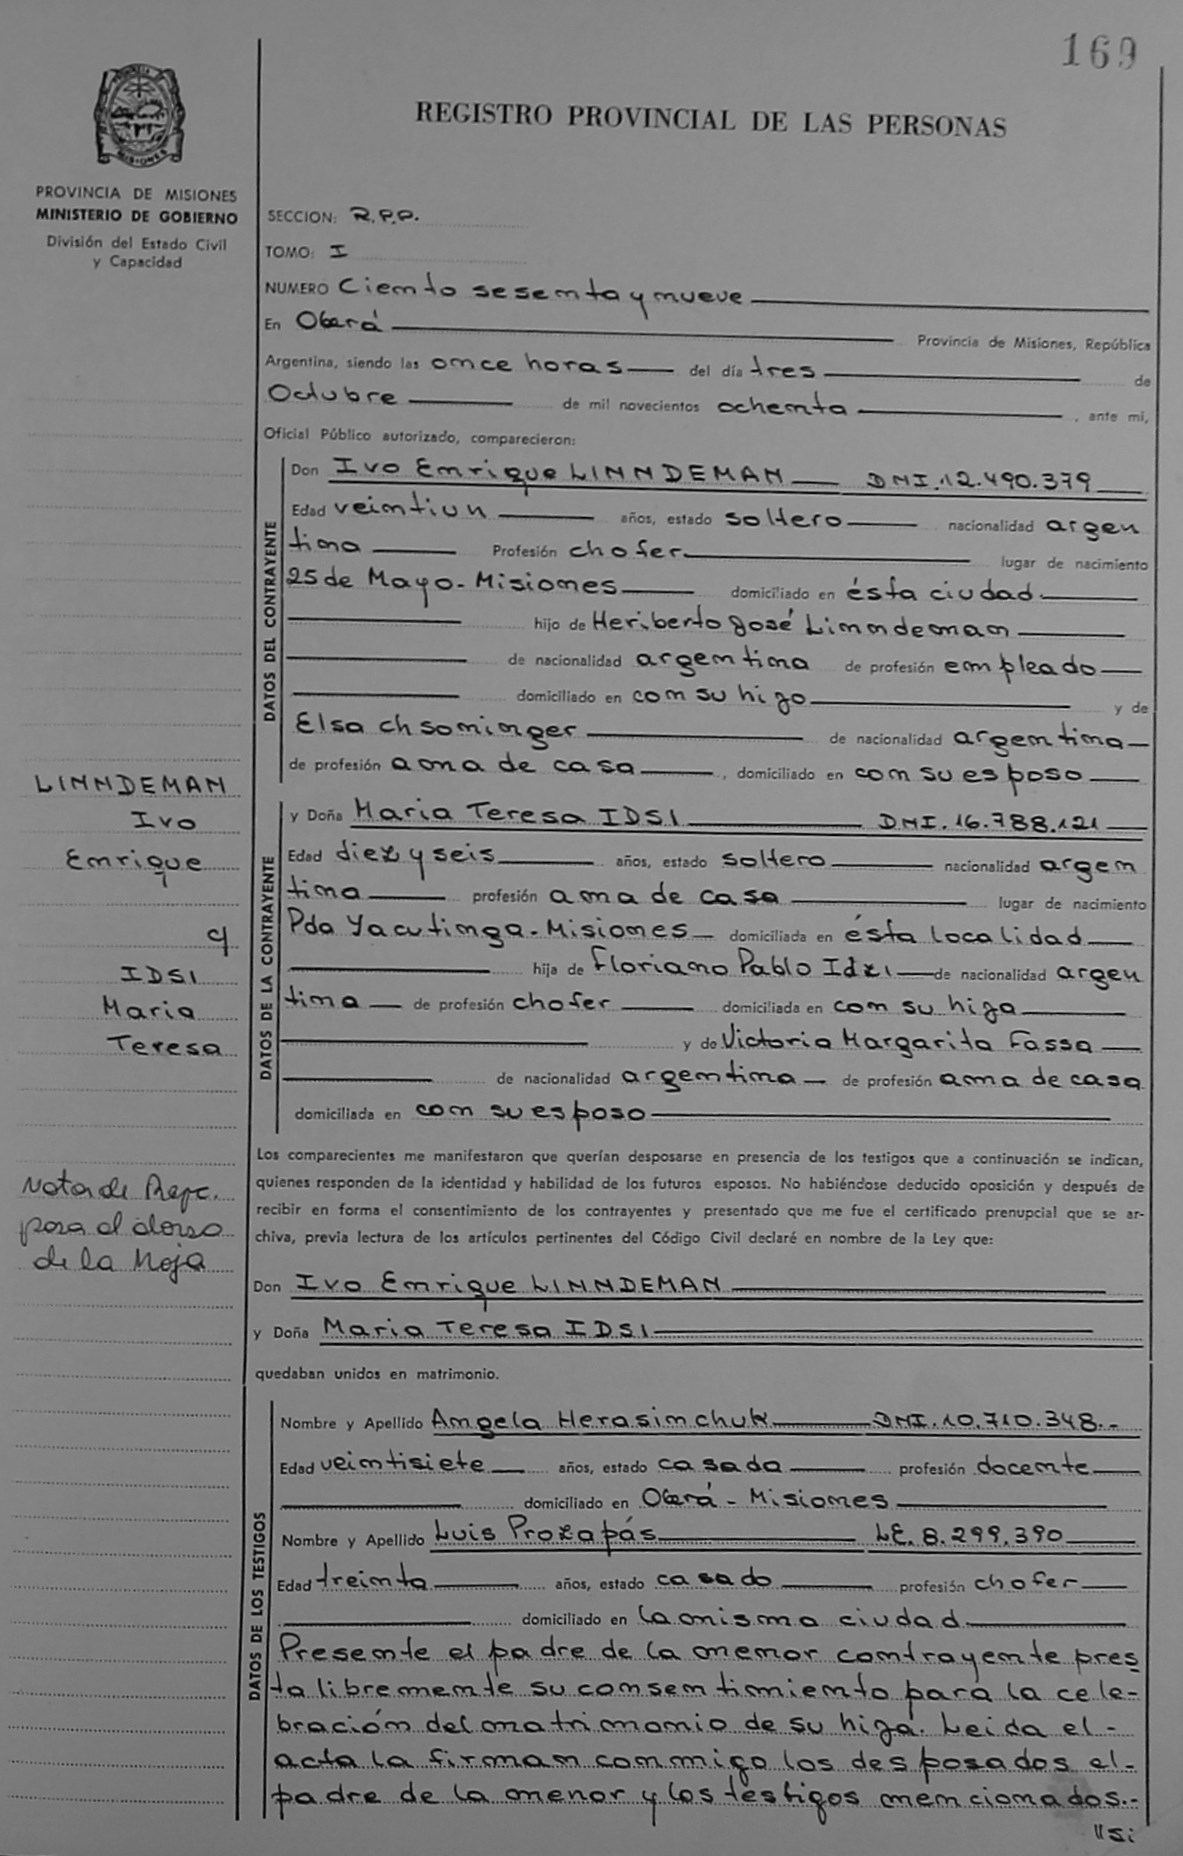 169
REGISTRO PROVINCIAL DE LAS PERSONAS
MISIONES
PROVINCIA DE MISIONES
MINISTERIO DE GOBIERNO
División del Estado Civil
y Capacidad
SECCION: R.P.P.
TOMO: I
NUMERO Ciento sesenta y nueve
En Oberá Provincia de Misiones, República
Argentina, siendo las once horas del día tres de
Octubre de mil novecientos ochenta, ante mi,
Oficial Público autorizado, comparecieron:
DATOS DEL CONTRAYENTE
Don Ivo Enrique LINNDEMAN DNI.12.490.379
Edad veintiun años, estado soltero nacionalidad argen
tina Profesión chofer lugar de nacimiento
25 de Mayo-Misiones domiciliado en ésta ciudad
hijo de Heriberto José Linndeman
de nacionalidad argentina de profesión empleado
domiciliado en con su hijo y de
Elsa chsoninger de nacionalidad argentina
de profesión ama de casa, domiciliado en con su esposo
LINNDEMAN
Ivo
Enrique
c/
IDSI
Maria
Teresa
DATOS DE LA CONTRAYENTE
y Doña Maria Teresa IDSI DNI.16.788.121
Edad diez y seis años, estado soltero nacionalidad argen
tina profesión ama de casa lugar de nacimiento
Pdo Yacutinga-Misiones domiciliada en ésta localidad
hija de Floriano Pablo Idzi de nacionalidad argen
tina de profesión chofer domiciliada en con su hija
y de Victoria Margarita Fassa
de nacionalidad argentina de profesión ama de casa
domiciliada en con su esposo
Los comparecientes me manifestaron que querían desposarse en presencia de los testigos que a continuación se indican,
quienes responden de la identidad y habilidad de los futuros esposos. No habiéndose deducido oposición y después de
recibir en forma el consentimiento de los contrayentes y presentado que me fue el certificado prenupcial que se ar-
chiva, previa lectura de los artículos pertinentes del Código Civil declaré en nombre de la Ley que:
Nota de Refc.
pasa al dorso
de la Hoja
Don Ivo Enrique LINNDEMAN
y Doña Maria Teresa IDSI
quedaban unidos en matrimonio.
DATOS DE LOS TESTIGOS
Nombre y Apellido Angela Herasimchuk DNI.10.710.348.-
Edad veintisiete años, estado casada profesión docente
domiciliado en Oberá - Misiones
Nombre y Apellido Luis Prozapás LE.8.299.390
Edad treinta años, estado casado profesión chofer
domiciliado en la misma ciudad
Presente el padre de la menor contrayente pres
ta libremente su consentimiento para la cele-
bración del matrimonio de su hija. Leida el-
acta la firman conmigo los desposados el-
padre de la menor y los testigos mencionados.-
"si